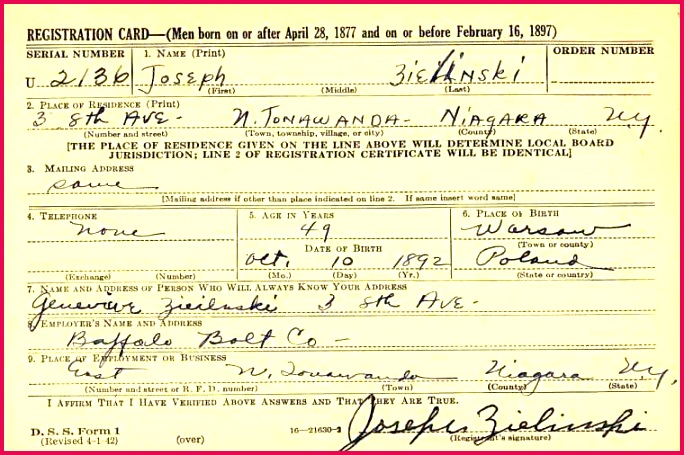 REGISTRATION CARD—(Men born on or after April 28, 1877 and on or before February 16, 1897)
SERIAL NUMBER 1. NAME (Print) ORDER NUMBER
U 2136 JOSEPH ZIELINSKI
(First) (Middle) (Last)
2. PLACE OF RESIDENCE (Print)
3 8th AVE- N. TONAWANDA- NIAGARA N.Y.
(Number and street) (Town, township, village, or city) (County) (State)
[THE PLACE OF RESIDENCE GIVEN ON THE LINE ABOVE WILL DETERMINE LOCAL BOARD
JURISDICTION; LINE 2 OF REGISTRATION CERTIFICATE WILL BE IDENTICAL]
3. MAILING ADDRESS
same
[Mailing address if other than place indicated on line 2. If same insert word same]
4. TELEPHONE 5. AGE IN YEARS 6. PLACE OF BIRTH
none 49 Warsaw
DATE OF BIRTH (Town or county)
Oct. 10 1892 Poland
(Exchange) (Number) (Mo.) (Day) (Yr.) (State or country)
7. NAME AND ADDRESS OF PERSON WHO WILL ALWAYS KNOW YOUR ADDRESS
Genevieve Zieilnski 3 8th AVE-
8. EMPLOYER'S NAME AND ADDRESS
Buffalo Bolt Co-
9. PLACE OF EMPLOYMENT OR BUSINESS
East N. Tonawanda Niagara N.Y.
(Number and street or R. F. D. number) (Town) (County) (State)
I AFFIRM THAT I HAVE VERIFIED ABOVE ANSWERS AND THAT THEY ARE TRUE.
D. S. S. Form 1
(Revised 4-1-42) (over) 16—21630-2 Joseph Zielinski
(Registrant's signature)